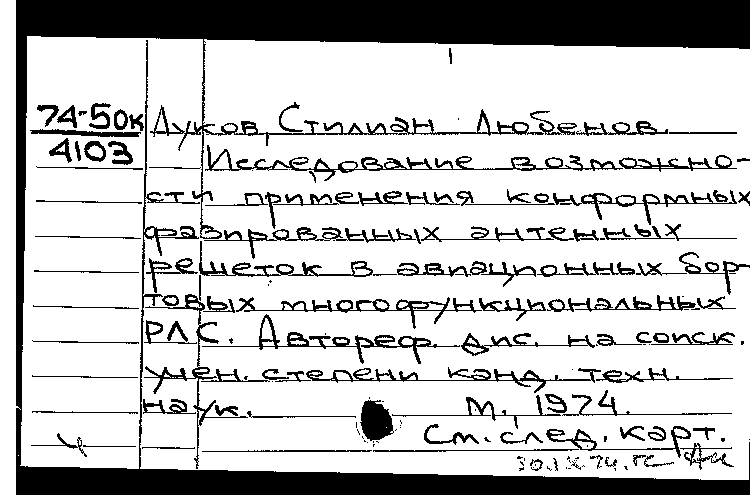 74-50к
4103
Луков, Стилиан Любенов.
Исследование возможно-
сти применения конформных
фазированных антенных
решеток в авиационных бор-
товых многофункциональных
РЛС. Автореф. дис. на соиск.
учен. степени канд. техн.
наук. М., 1974.
См. след. карт.
30.IX.74.